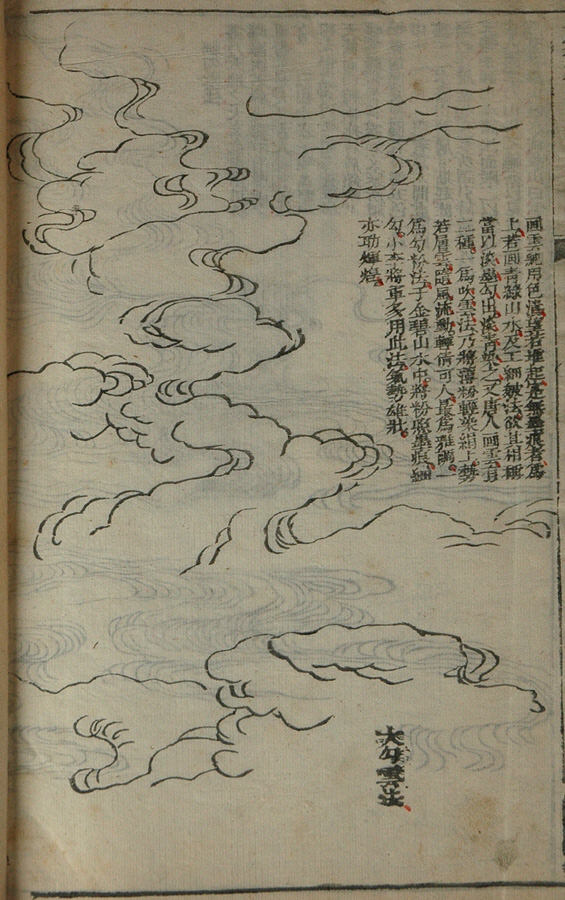 画雲純用色渲染若堆起㡳無墨痕者爲
上若画青綠山水及工細皴法欲其相稱
當以淡墨勾出淡青烘之又唐人画雲有
二種一爲吹雲法乃將薄粉輕染絹上勢
若層雲隨風流動輕倩可人最爲雅䦆一
爲勾粉法于金碧山水中將粉照墨痕細
勾小李將軍多用此法氣勢雄壯
亦助煇煌
大勾雲法